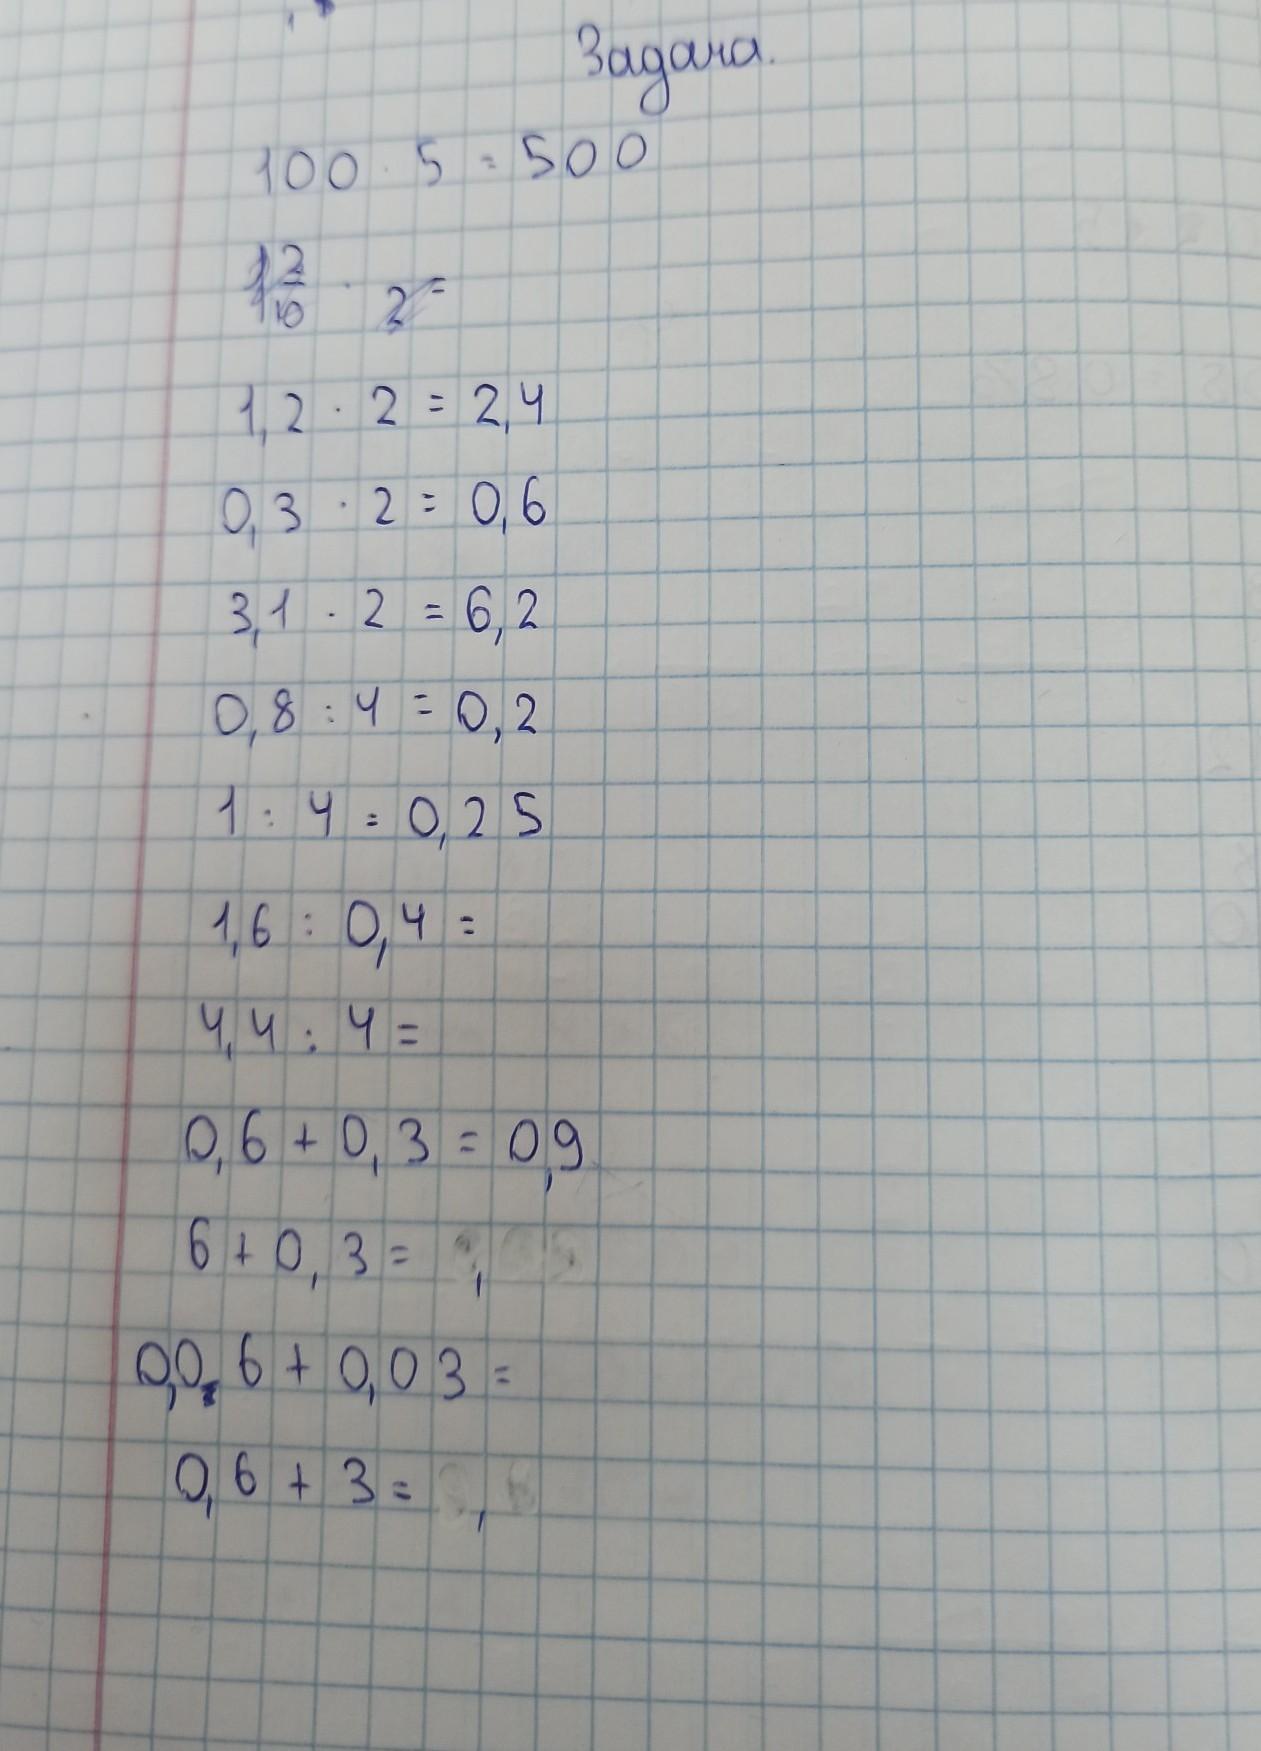 Задача.
100 · 5 = 500
1,2 · 2 = 2,4
0,3 · 2 = 0,6
3,1 · 2 = 6,2
0,8 : 4 = 0,2
1 : 4 = 0,25
1,6 : 0,4 =
4,4 : 4 =
0,6 + 0,3 = 0,9
6 + 0,3 = ,
0,06 + 0,03 =
0,6 + 3 = ,